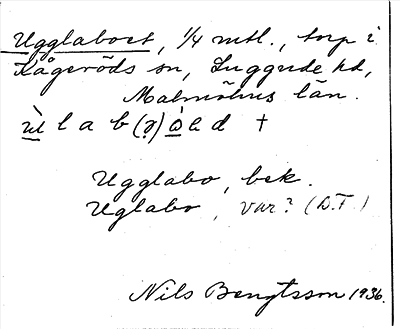 Ugglaboet, 1/4 mtl., torp i
Kågeröds sn, Luggude hd,
Malmöhus län.
l a b (ə) d †
Ugglabo, bek.
Uglabo, var? (D.T.)
Nils Bengtsson 1936.